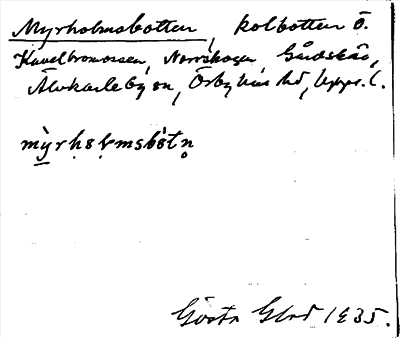 Myrholmsbotten, kolbotten ö.
Kavelbromossen, Norrskogen, Gårdskär,
Älvkarleby sn, Örbyhus hd, Upps. l.
mỳrhołmsbòtn̥
Gösta Glad 1935.